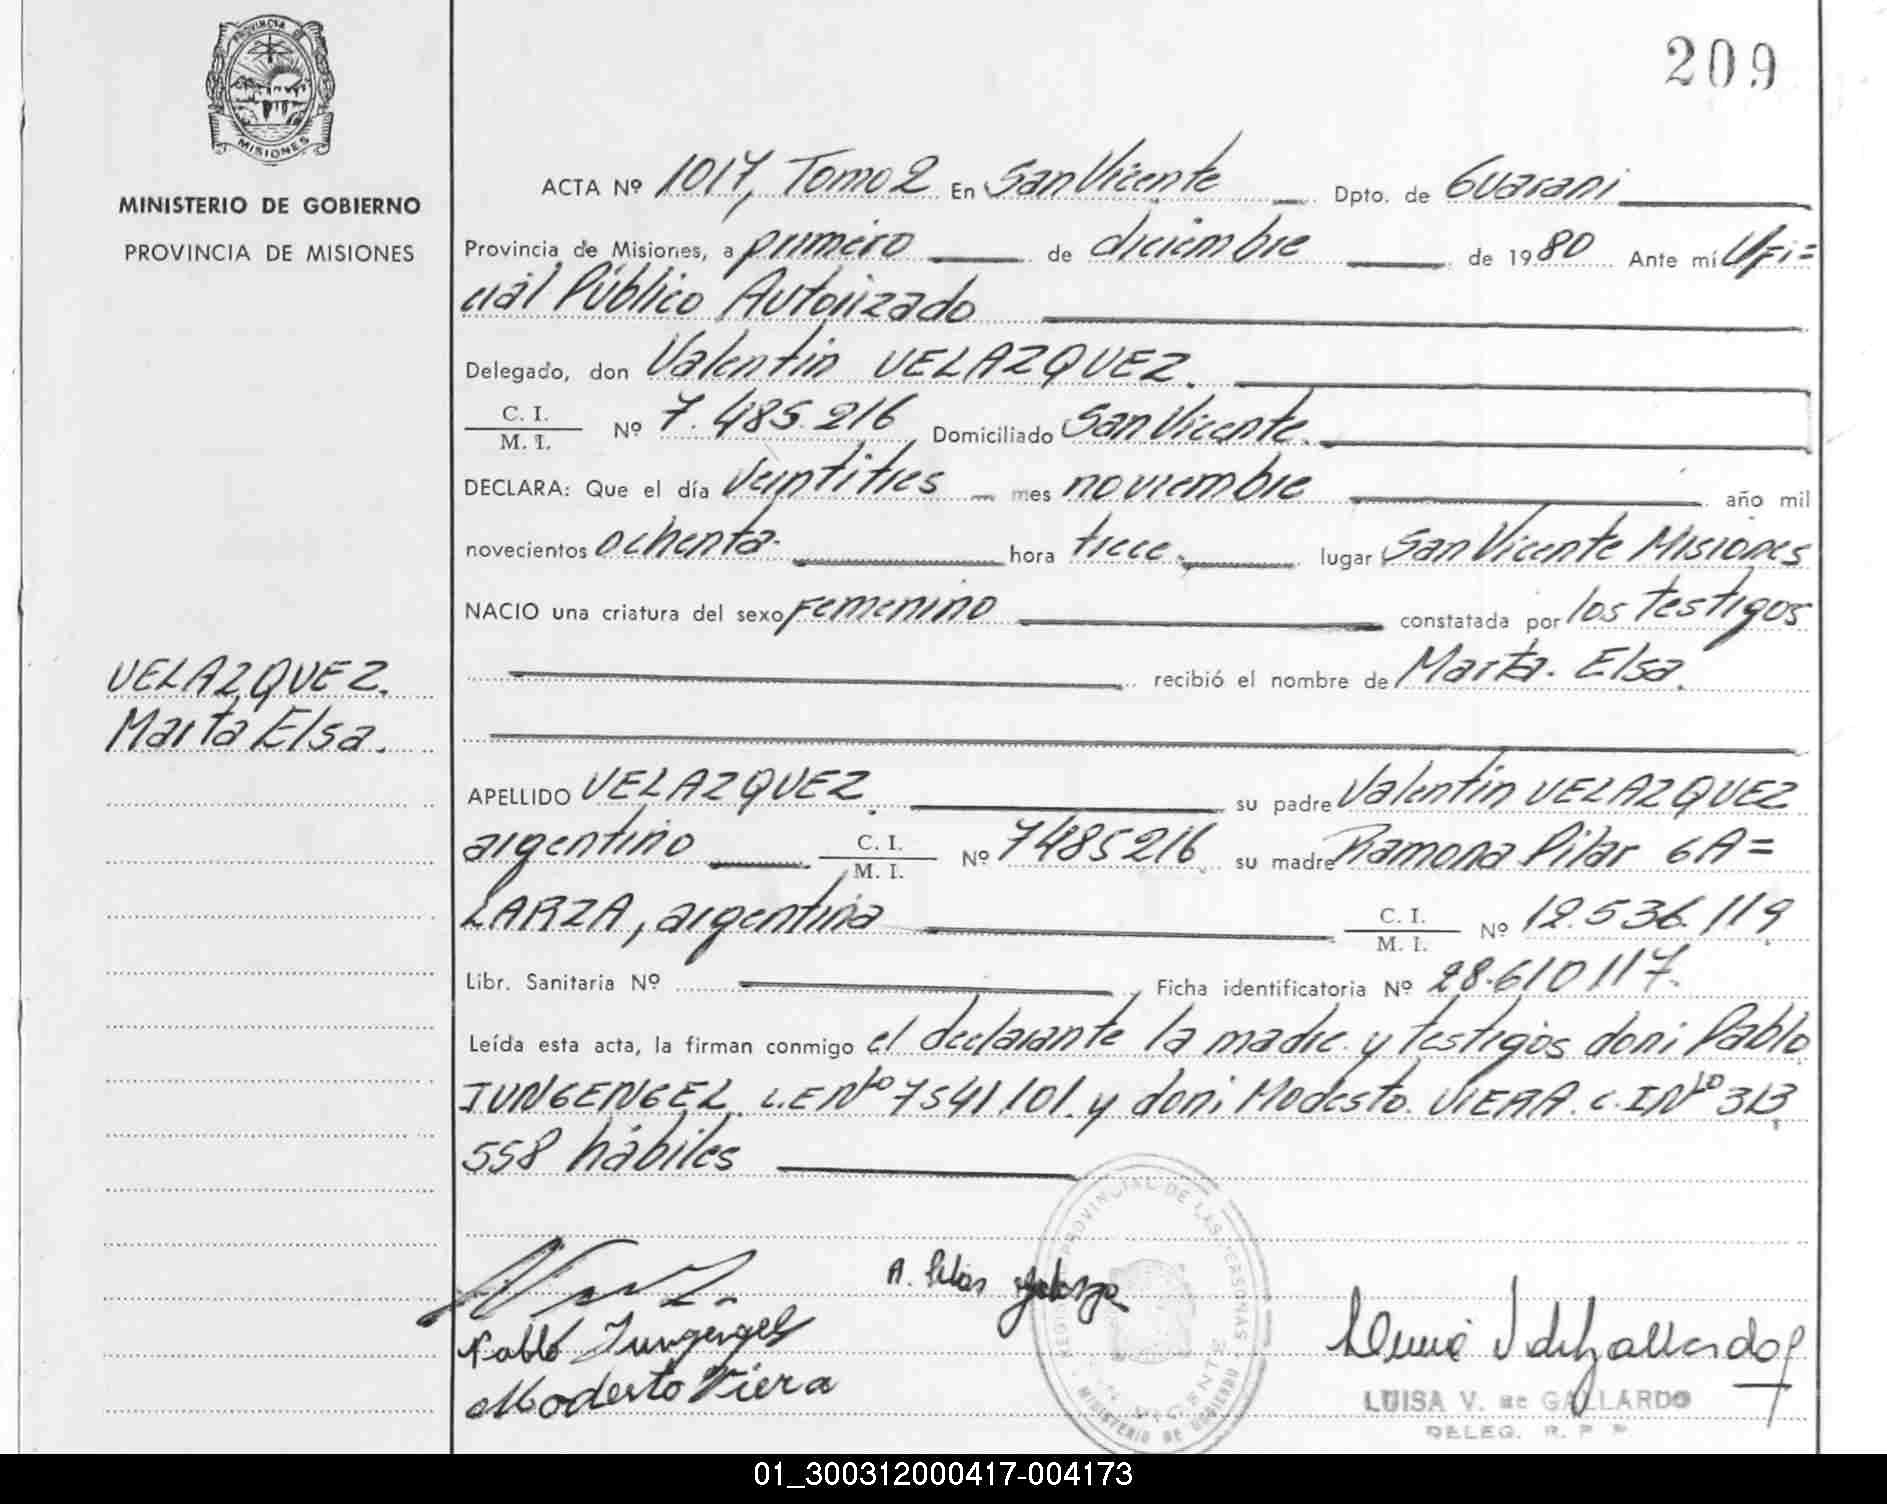 209
PROVINCIA DE
MISIONES
MINISTERIO DE GOBIERNO
PROVINCIA DE MISIONES
VELAZQUEZ.
Marta Elsa.
ACTA Nº 1017, Tomo 2 En San Vicente Dpto. de Guarani
Provincia de Misiones, a primero de diciembre de 1980 Ante mí Ofi=
cial Público Autorizado
Delegado, don Valentin VELAZQUEZ.
C. I.
M. I. Nº 7.485.216 Domiciliado San Vicente.
DECLARA: Que el día veintitres mes noviembre año mil
novecientos ochenta- hora trece. lugar San Vicente Misiones
NACIO una criatura del sexo femenino constatada por los testigos
recibió el nombre de Marta. Elsa.
APELLIDO VELAZQUEZ. su padre Valentin VELAZQUEZ
argentino C. I. M. I. Nº 7485216 su madre Ramona Pilar GA=
LARZA, argentina C. I. M. I. Nº 12.536.119
Libr. Sanitaria Nº Ficha identificatoria Nº 28.610117.
Leída esta acta, la firman conmigo el declarante la madre y testigos don: Pablo
JUNGENGEL. L.E Nto 7541.101. y don: Modesto. VIERA. c. I Nto 313
558 hábiles
Pablo Jungengel
Modesto Viera
REGISTRO PROVINCIAL DE LAS PERSONAS
SAN VICENTE
MINISTERIO DE GOBIERNO
LUISA V. de GALLARDO
DELEG. R. P. P.
01_300312000417-004173